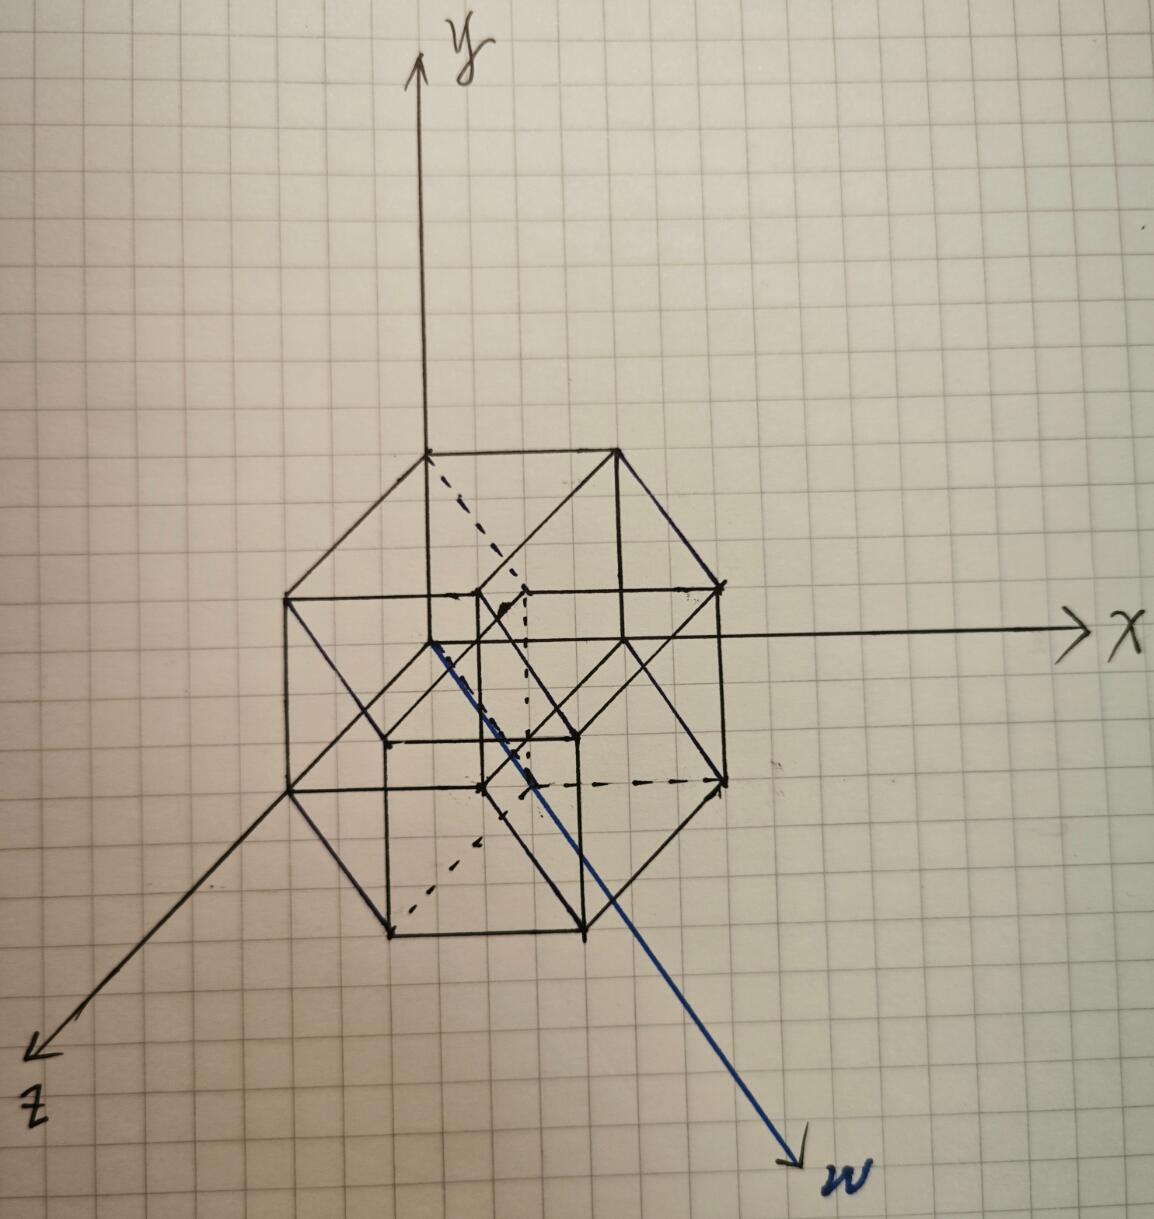 y
x
z
w